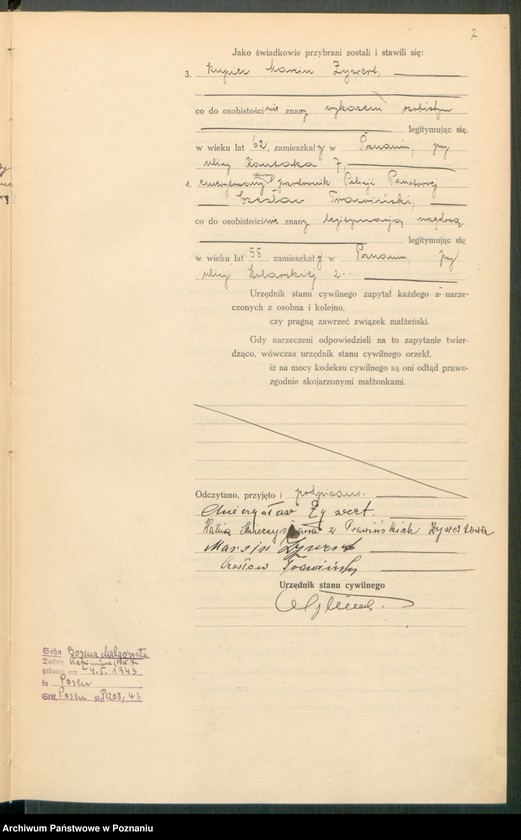 2
Jako świadkowie przybrani zostali i stawili się:
3. kupiec Marcin Żywert,
co do osobistości nie znany wykazem osobistym
legitymując się,
w wieku lat 62, zamieszkały w Poznaniu, przy
ulicy Kantaka 7,
4. emerytowany przodownik Policji Państwowej
Czesław Trawiński,
co do osobistości nie znany legitymacją urzędową
legitymując się
w wieku lat 55 zamieszkały w Poznaniu, przy
ulicy 2.
Urzędnik stanu cywilnego zapytał każdego z narze-
czonych z osobna i kolejno,
czy pragną zawrzeć związek małżeński.
Gdy narzeczeni odpowiedzieli na to zapytanie twier-
dząco, wówczas urzędnik stanu cywilnego orzekł,
iż na mocy kodeksu cywilnego są oni odtąd prawo-
zgodnie skojarzonymi małżonkami.
Odczytano, przyjęto i podpisano.
Mieczysław Żywert.
Halina z Trawińskich Żywertowa
Marcin Żywert
Czesław Trawiński
Urzędnik stanu cywilnego
Bożena Małgorzata
Tochter
geboren am 4.5.1943
in Posen
StA. Posen Nr. 1208/43
Archiwum Państwowe w Poznaniu